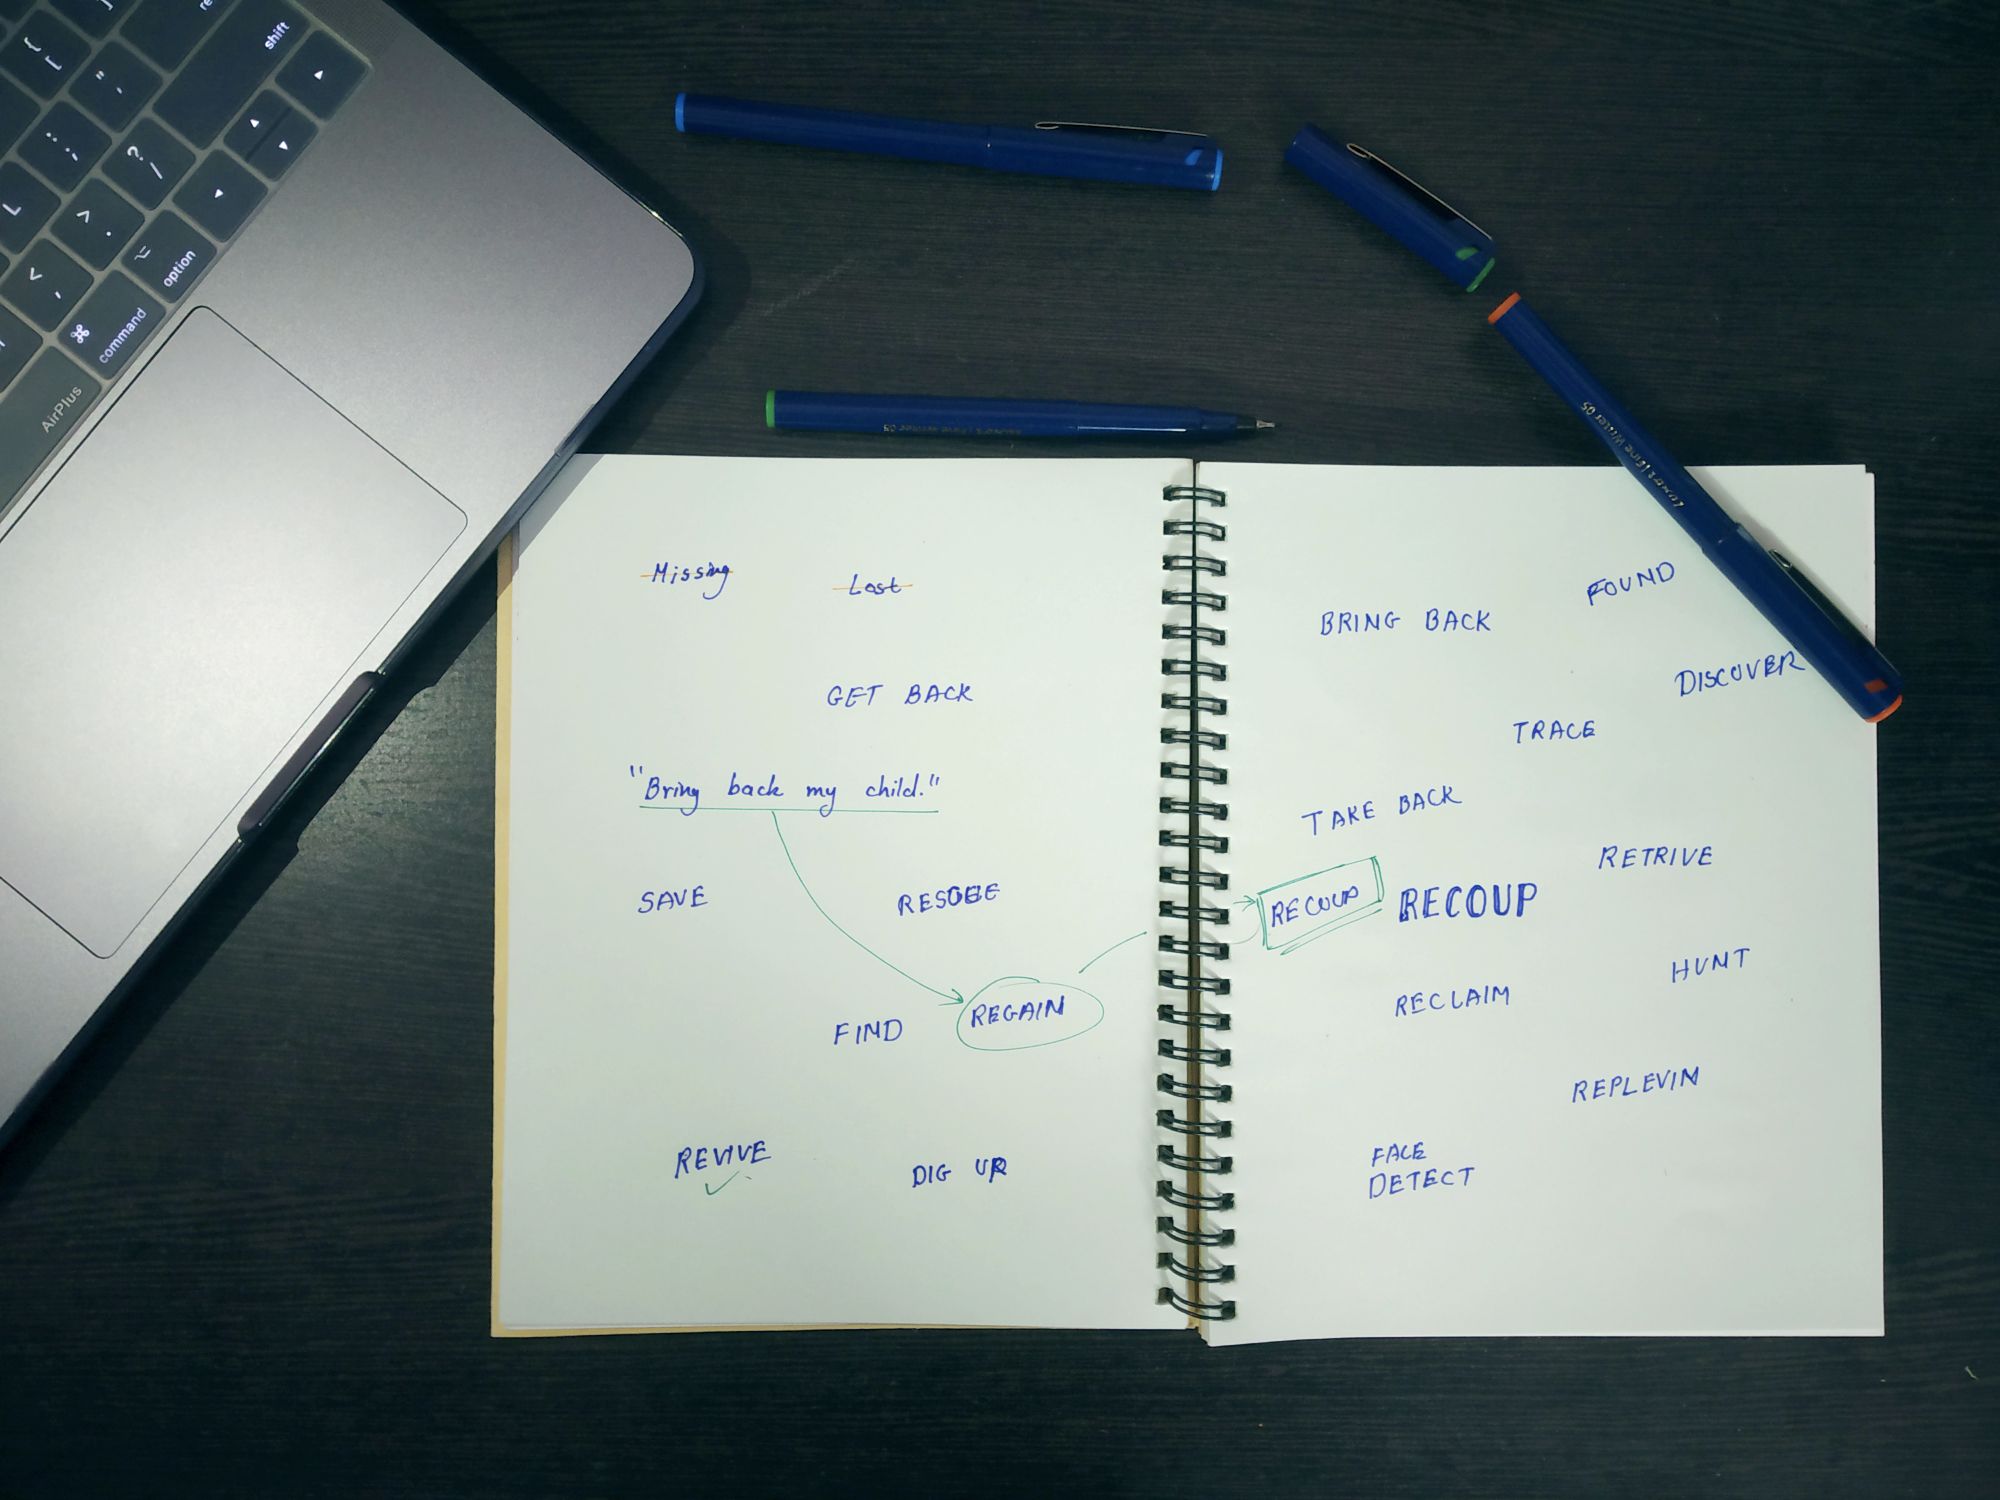 shift
option
command
AirPlus
LUXOR | Fine Writer 05
Missing
Lost
GET BACK
"Bring back my child."
SAVE
FIND
REGAIN
REVIVE
DIG UP
FOUND
BRING BACK
DISCOVER
TRACE
TAKE BACK
RETRIVE
RECOUP
RECOUP
HUNT
RECLAIM
REPLEVIN
FACE
DETECT